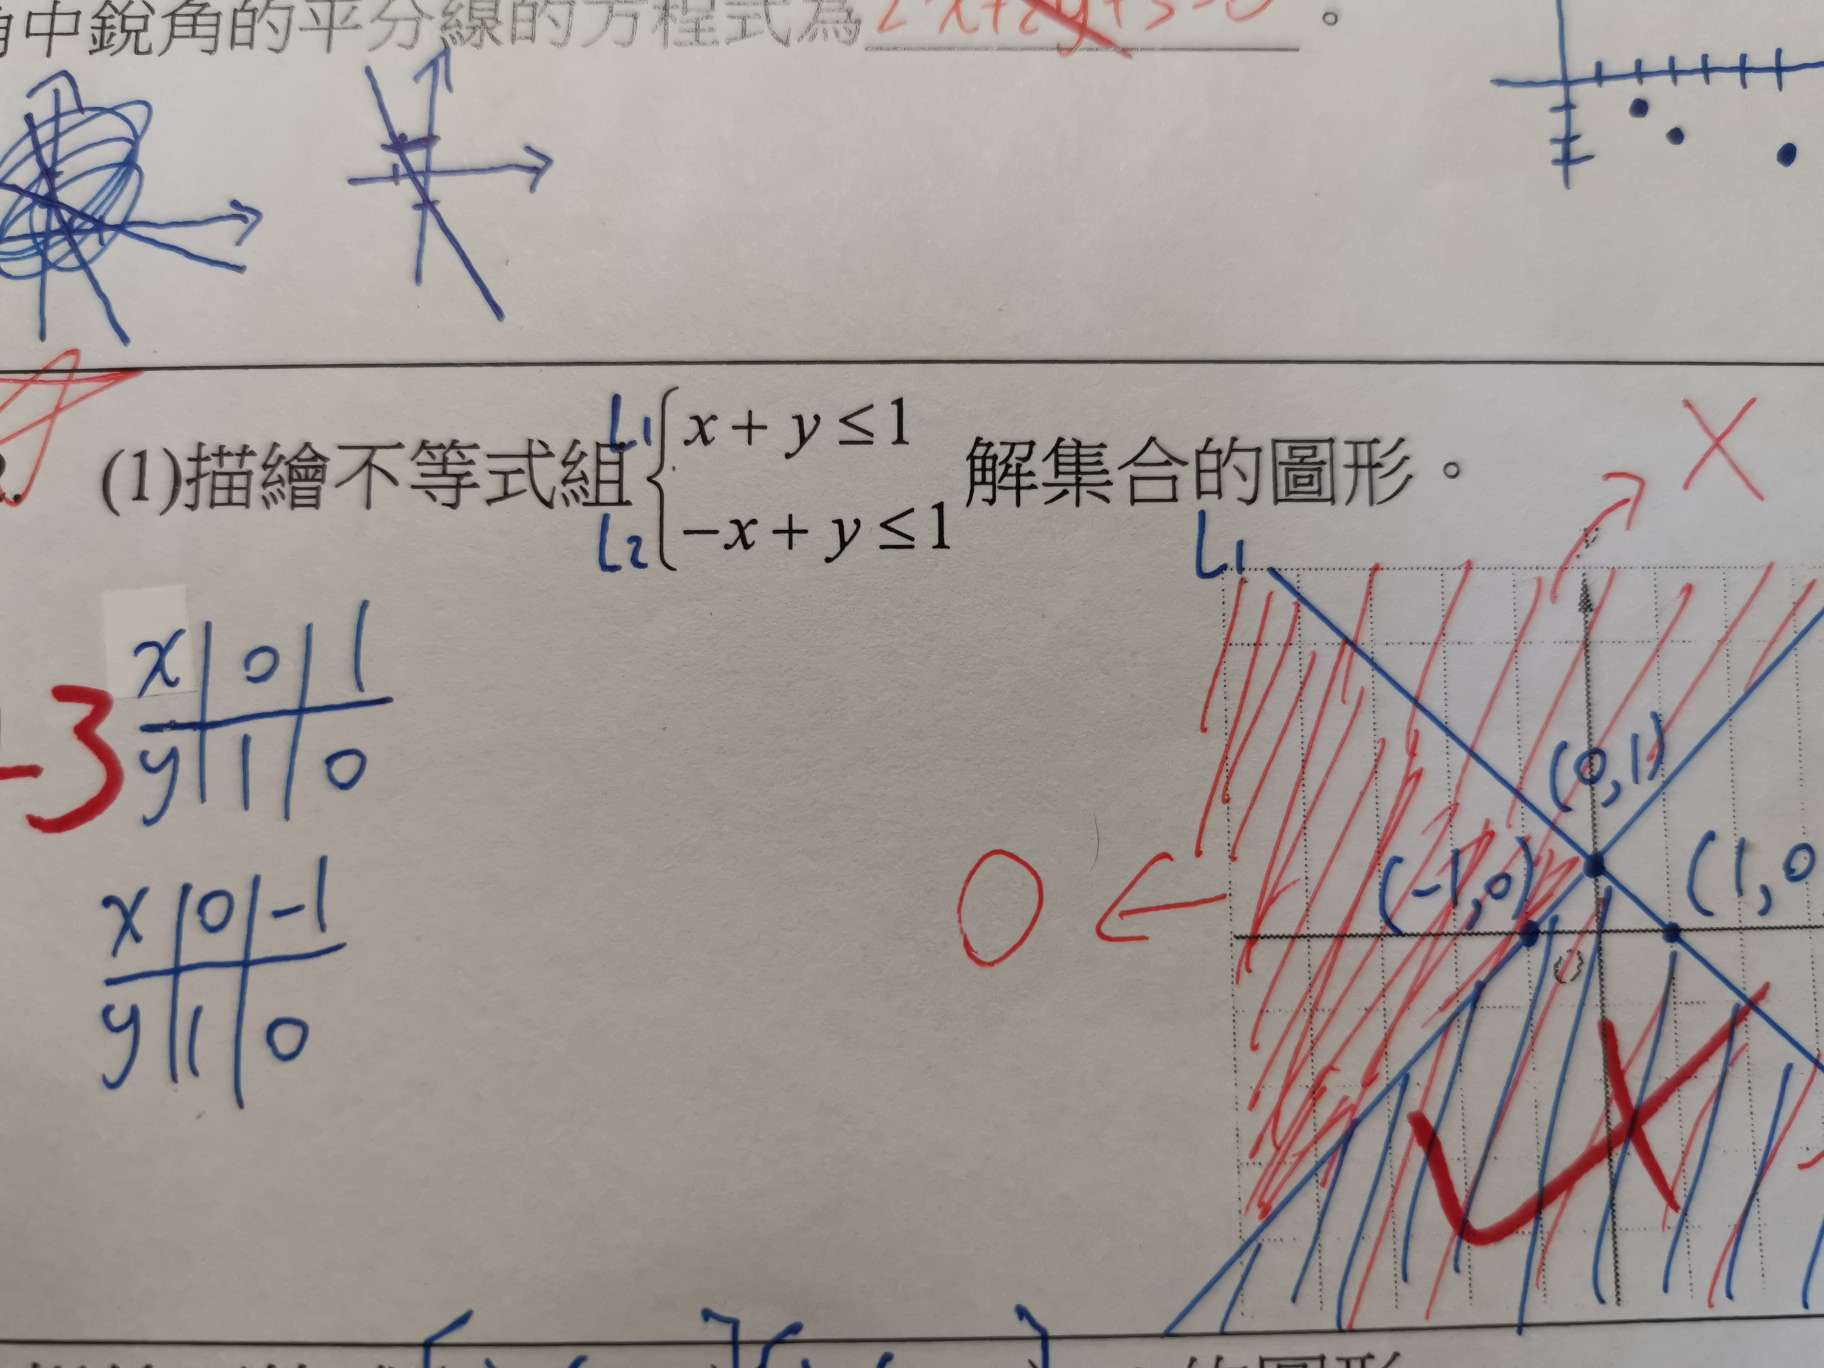 角中銳角的平分線的方程式為2x+2y+3=0。
(1)描繪不等式組 L1 { x + y ≤ 1
L2 { -x + y ≤ 1 解集合的圖形。
X
L1
x | 0 | 1
y | 1 | 0
-3
(0,1)
(-1,0)
(1,0
O
x | 0 | -1
y | 1 | 0
的圖形